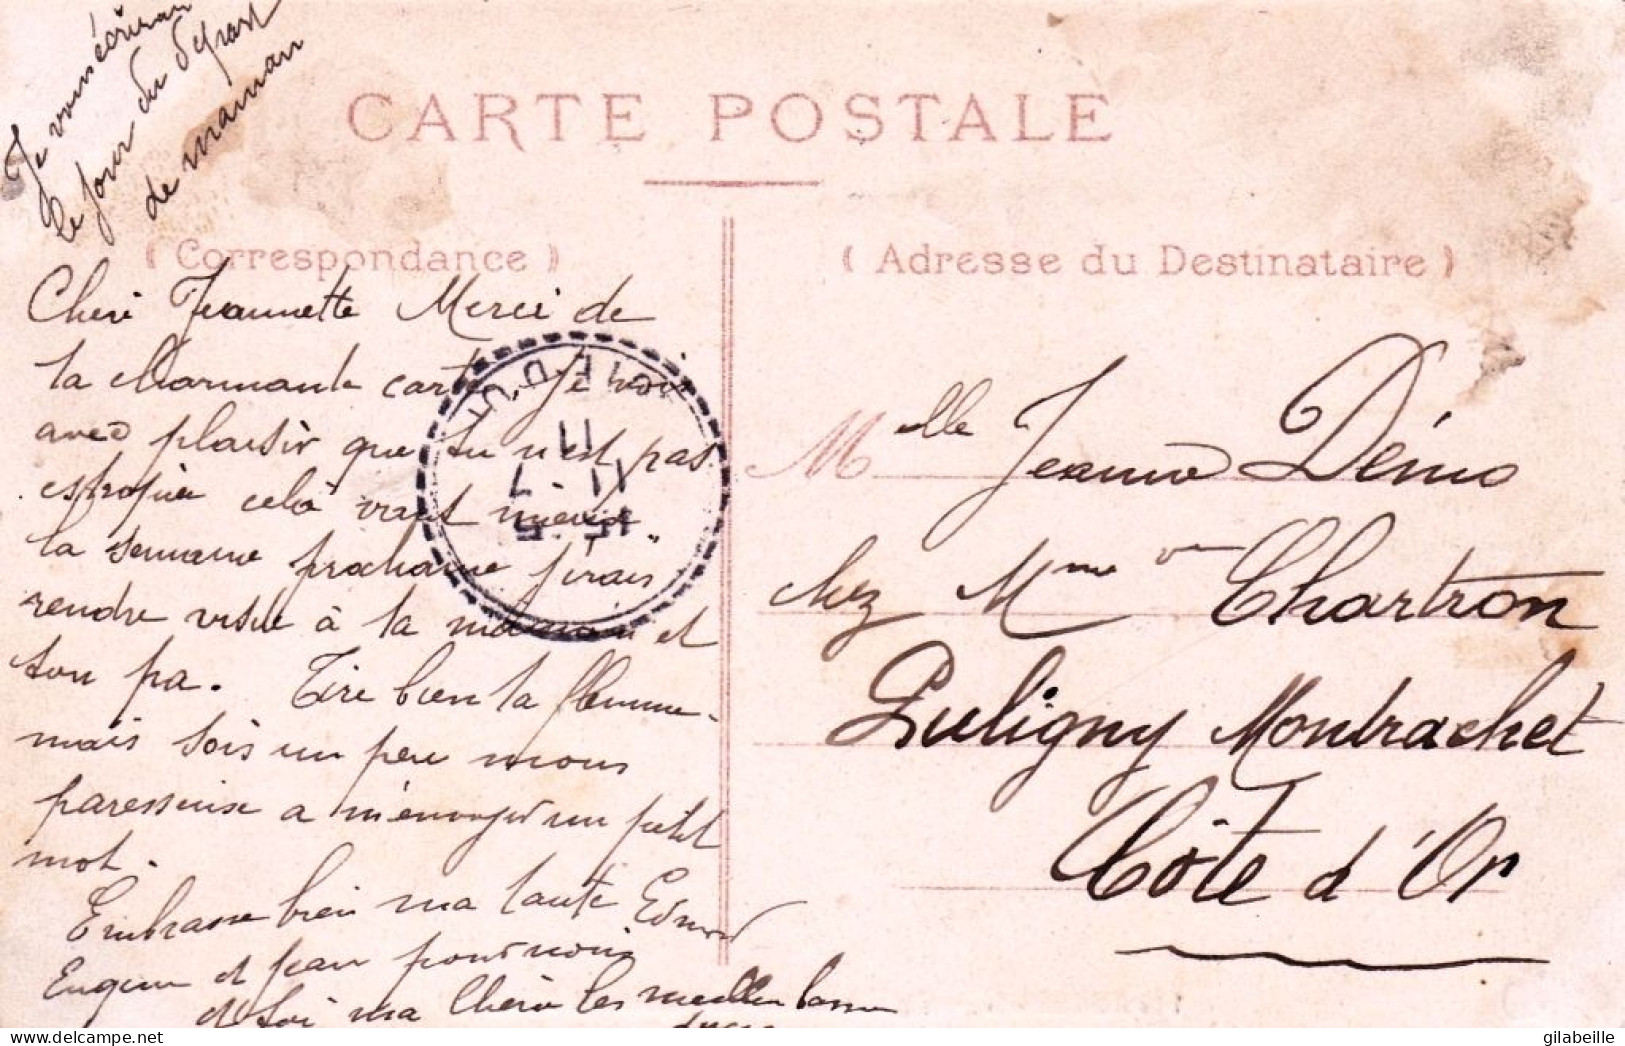 Je vous écrirai
le jour du départ
de maman
CARTE POSTALE
( Correspondance )
( Adresse du Destinataire )
Chère Jeannette Merci de
ta charmante carte, je vois
avec plaisir que tu n'est pas
estropiée celà vaut mieux
la semaine prochaine j'irais
rendre visite à ta maman et
ton pa. Tire bien ta flemme
mais sois un peu moins
paresseuse a m'envoyer un petit
mot.
Embrasse bien ma tante Edmond
et Jean pour moi
et toi ma chère les meilleurs
11
11 - 7
15 - 5
Melle Jeanne Denis
chez Mme Chartron
Puligny Montrachet
Côte d'Or
gilabeille